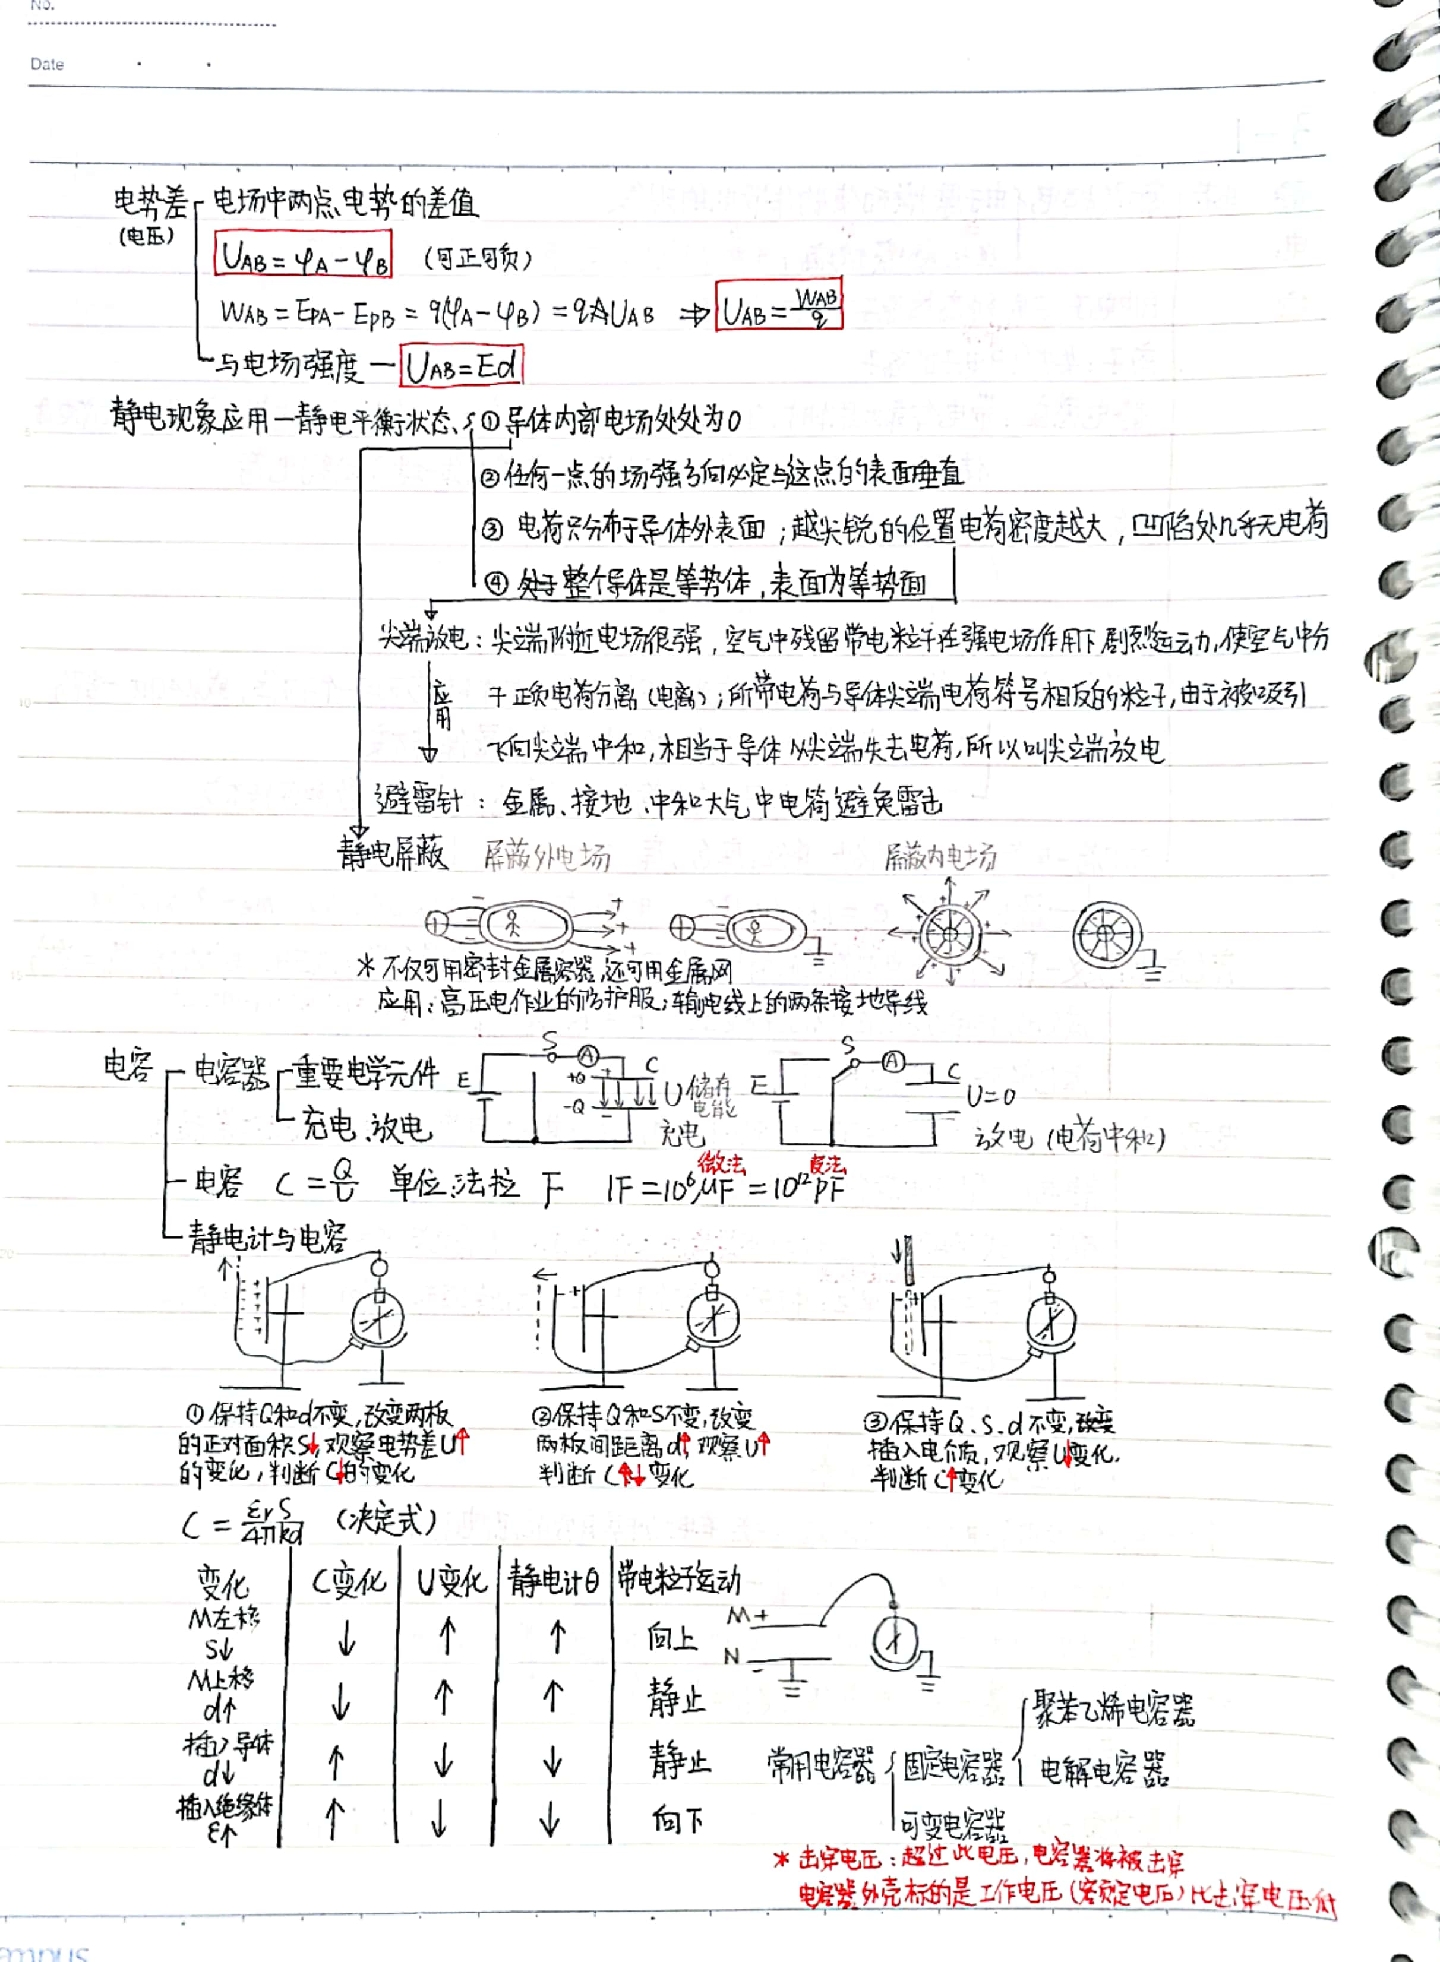 No.
Date
电势差 电场中两点电势的差值
(电压)
UAB = φA - φB (可正可负)
WAB = EPA - EPB = q(φA - φB) = qUAB ⇒ UAB = WAB/q
与电场强度 — UAB = Ed
静电现象应用 — 静电平衡状态 ① 导体内部电场处处为0
② 任何一点的场强方向必定与这点的表面垂直
③ 电荷只分布于导体外表面；越尖锐的位置电荷密度越大，凹陷处几乎无电荷
④ 整个导体是等势体，表面为等势面
尖端放电：尖端附近电场很强，空气中残留带电粒子在强电场作用下剧烈运动，使空气中分
应用 子正负电荷分离（电离）；所带电荷与导体尖端电荷符号相反的粒子，由于被吸引
飞向尖端中和，相当于导体从尖端失去电荷，所以叫尖端放电
避雷针：金属、接地、中和大气中电荷避免雷击
静电屏蔽 屏蔽外电场 屏蔽内电场
* 不仅可用密封金属容器，还可用金属网
应用：高压电作业的防护服；输电线上的两条接地导线
电容 电容器 重要电学元件
充电、放电
E S A +Q -Q C U 储存电能 充电
E S A C U=0 放电 (电荷中和)
微法 皮法
电容 C = Q/U 单位:法拉 F 1F = 10⁶μF = 10¹²pF
静电计与电容
① 保持Q和d不变，改变两板
的正对面积S↓，观察电势差U↑
的变化，判断C↓的变化
② 保持Q和S不变，改变
两板间距离d↑，观察U↑
判断C↓变化
③ 保持Q、S、d不变，
插入电介质，观察U↓变化，
判断C↑变化
C = εrS/4πkd (决定式)
变化 C变化 U变化 静电计θ 带电粒子运动
M左移 S↓ ↓ ↑ ↑ 向上
M上移 d↑ ↓ ↑ ↑ 静止
插入导体 d↓ ↑ ↓ ↓ 静止
插入绝缘体 ε↑ ↑ ↓ ↓ 向下
M +
N -
常用电容器 固定电容器 聚苯乙烯电容器
电解电容器
可变电容器
* 击穿电压：超过此电压，电容器将被击穿
电容器外壳标的是工作电压（额定电压）比击穿电压低